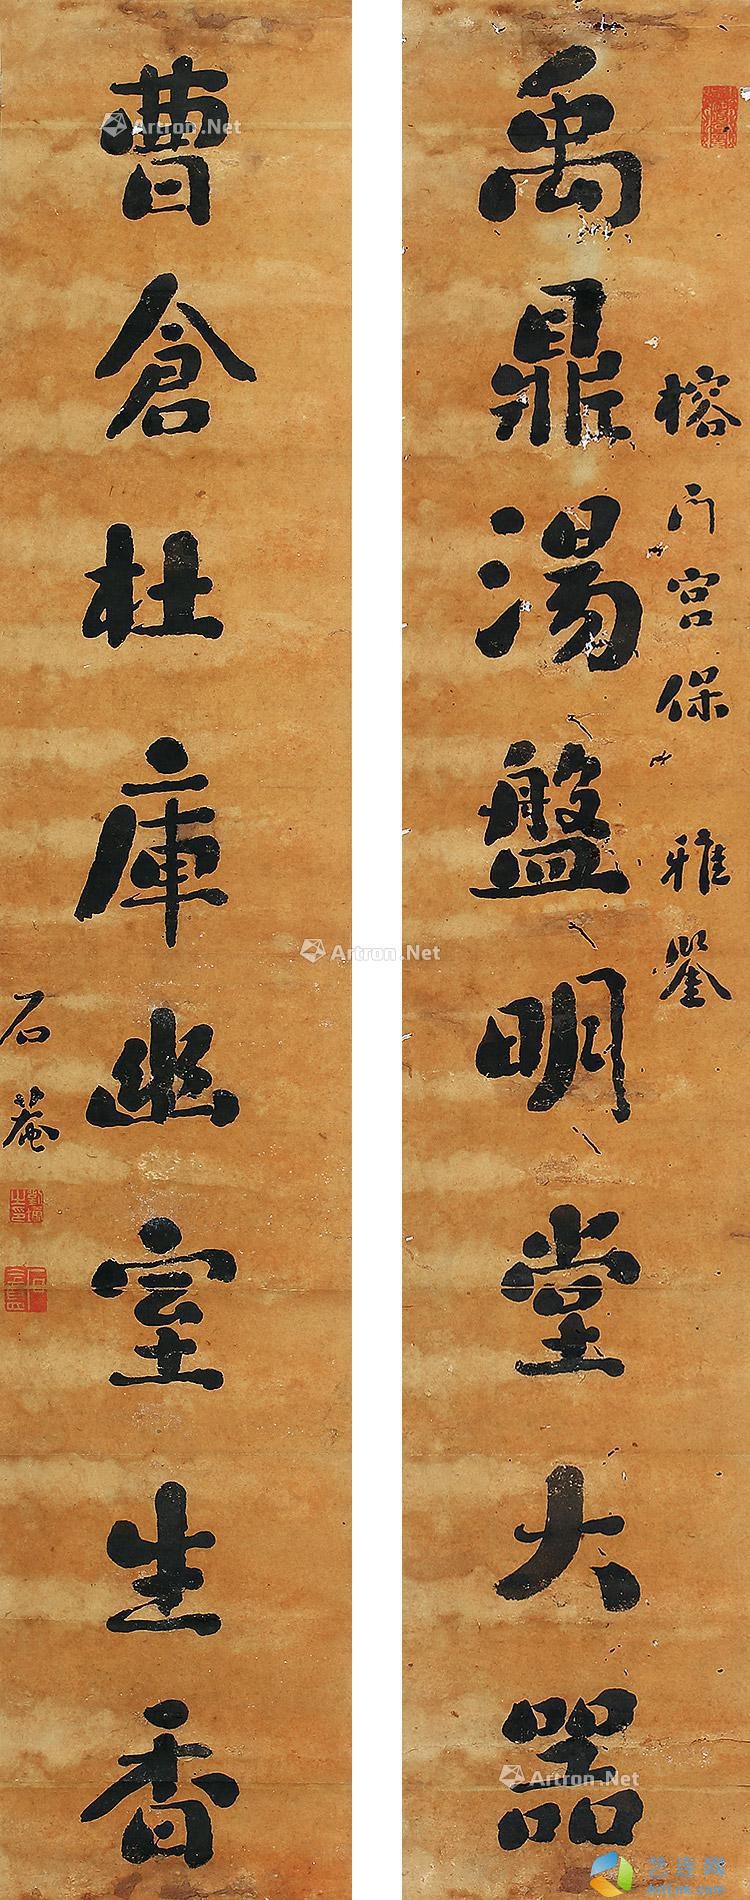 榕門宮保 雅鑒
禹鼎湯盤明堂大器
曹倉杜庫幽室生香
石菴
劉墉之印
Artron.Net
Artron.Net
Artron.Net
艺连网